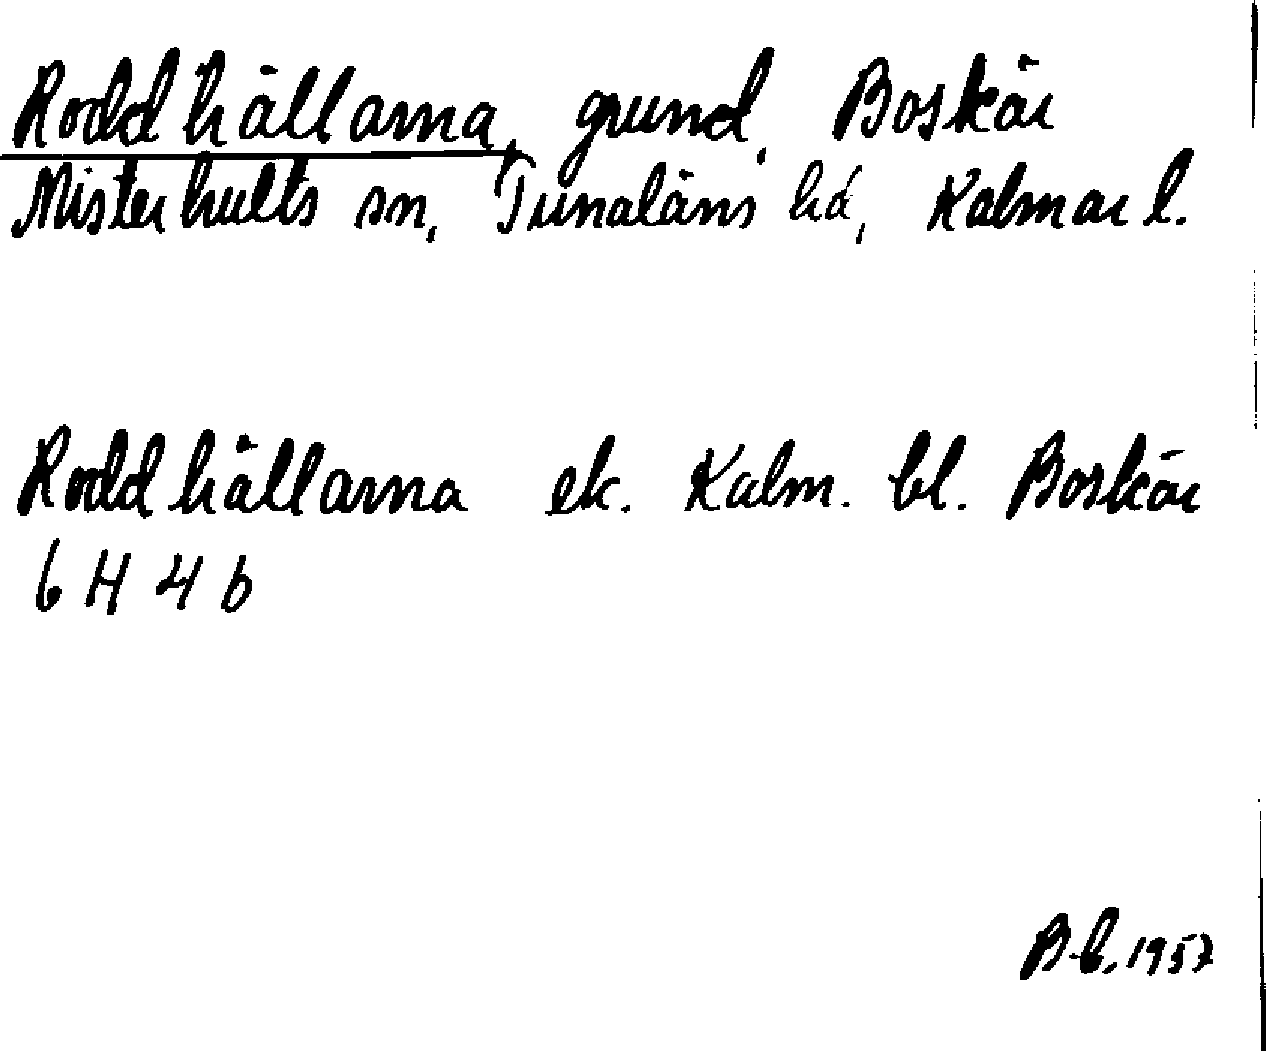 Roddhällarna, grund, Boskär
Misterhults sn, Tunaläns hd, Kalmar l.
Roddhällarna ek. Kalm. bl. Boskär
6 H 4 b
B-b. 1957